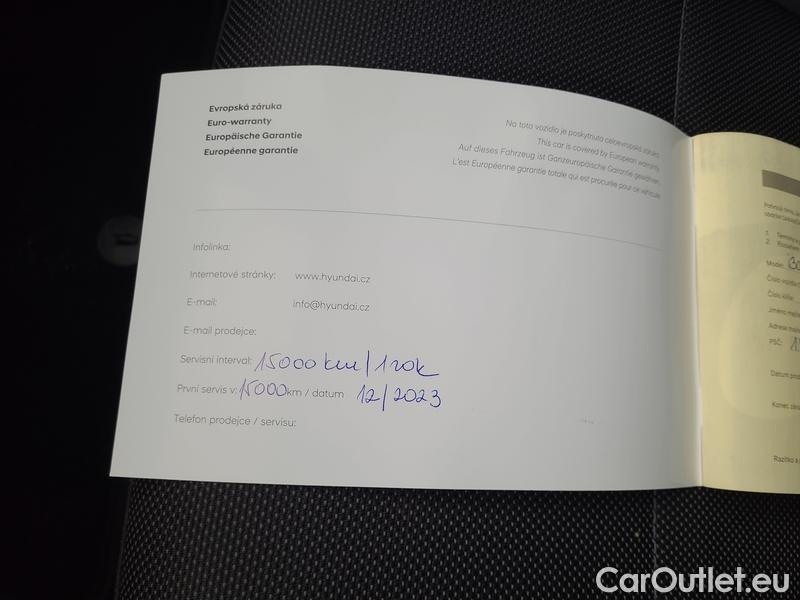 Evropská záruka
Euro-warranty
Europäische Garantie
Européenne garantie
Na toto vozidlo je poskytnuta celoevropská záruka.
This car is covered by European warranty.
Auf dieses Fahrzeug ist Ganzeuropäische Garantie gewähren.
L'est Européenne garantie totale qui est procurée pour ce véhicule
Infolinka:
Internetové stránky: www.hyundai.cz
E-mail: info@hyundai.cz
E-mail prodejce:
Servisní interval: 15000 km/1 rok
První servis v: 15000 km / datum 12/2023
Telefon prodejce / servisu:
1.
2.
Model:
Číslo
Jméno
Adresa
PSČ:
Datum
Konec
Razítko a
CarOutlet.eu